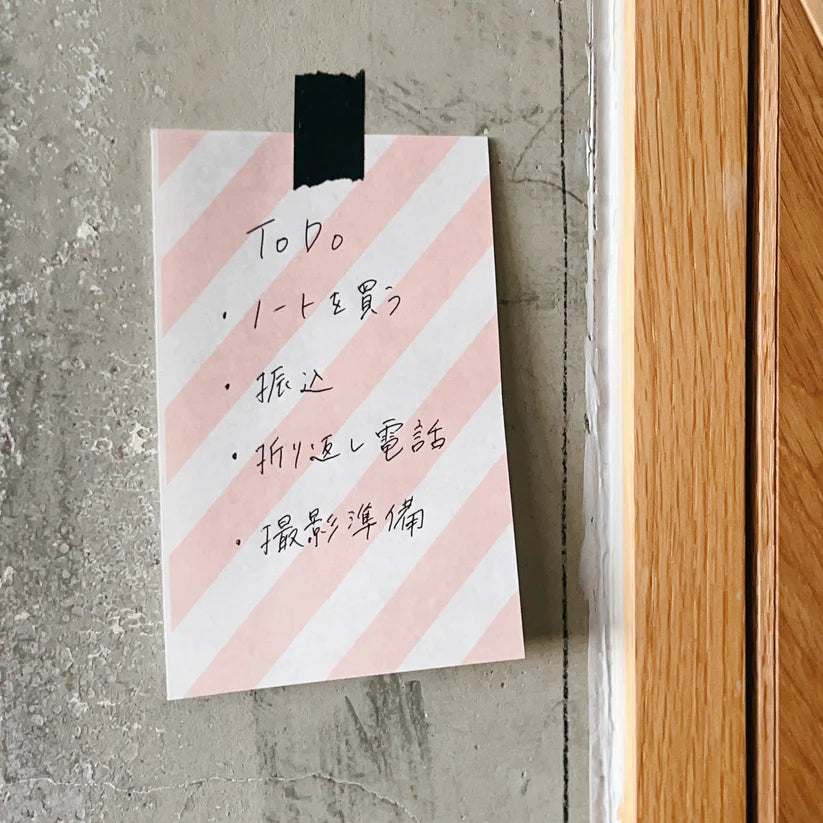 ToDo
・ノートを買う
・振込
・折り返し電話
・撮影準備